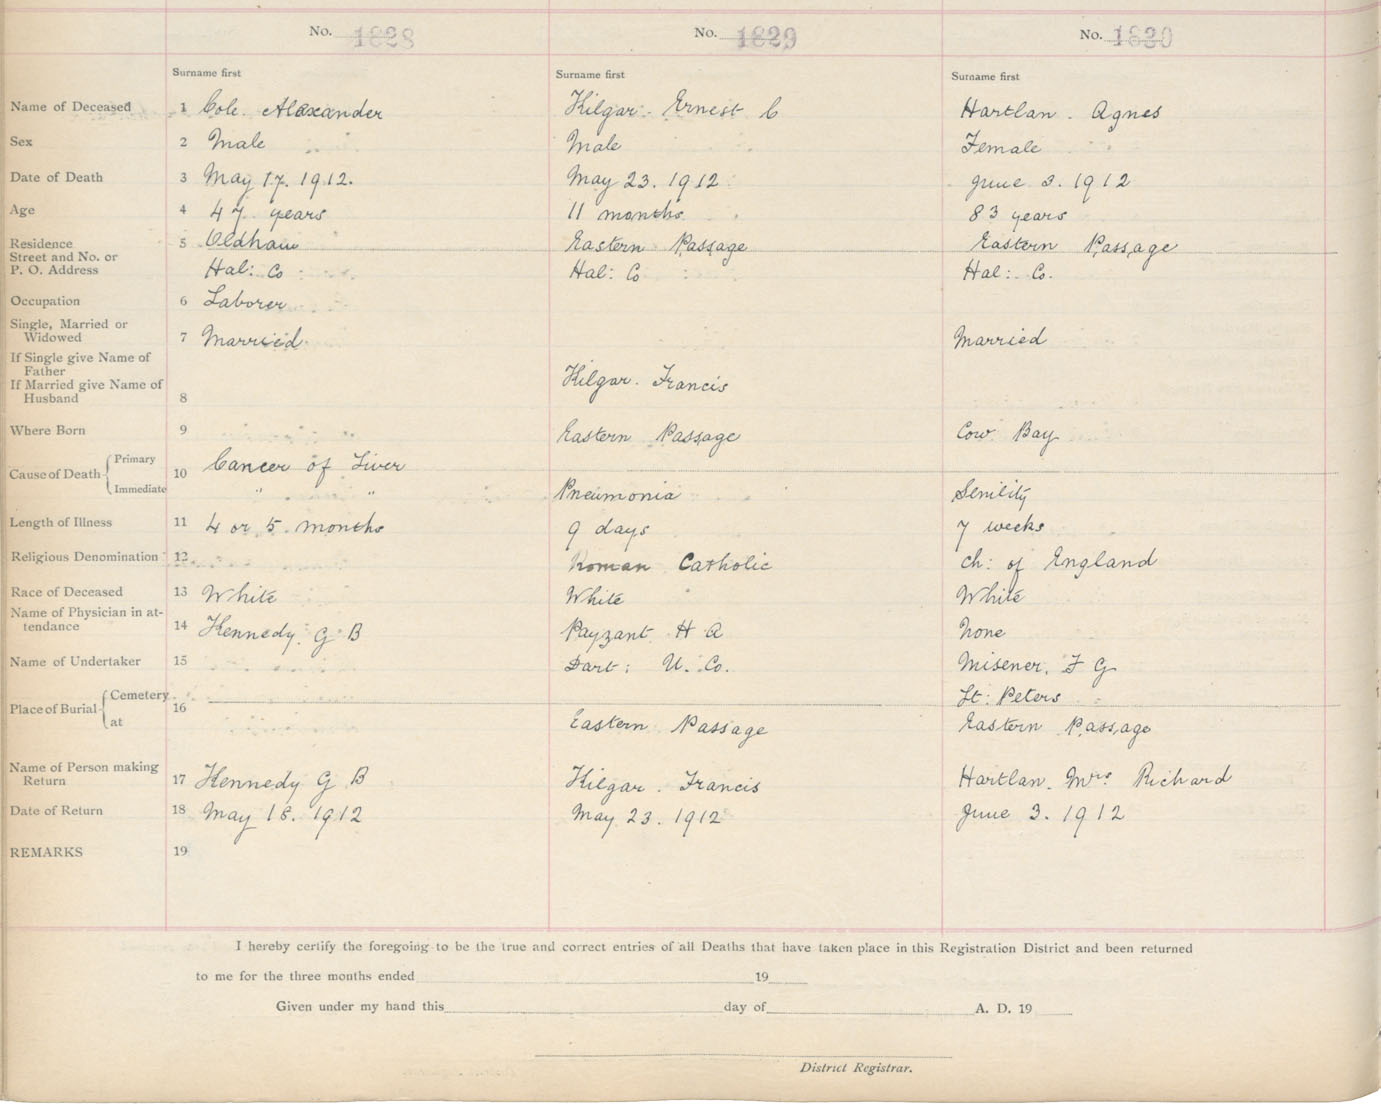 No. 1828 No. 1829 No. 1830
Surname first Surname first Surname first
Name of Deceased 1 Cole. Alexander Kilgar. Ernest C Hartlan. Agnes
Sex 2 Male Male Female
Date of Death 3 May 17. 1912. May 23. 1912 June 3. 1912
Age 4 47 years 11 months 83 years
Residence 5 Oldham Eastern Passage Eastern Passage
Street and No. or
P. O. Address Hal: Co Hal: Co Hal: Co.
Occupation 6 Laborer
Single, Married or
Widowed 7 Married Married
If Single give Name of
Father
If Married give Name of Kilgar. Francis
Husband 8
Where Born 9 Eastern Passage Cow Bay
Primary Cancer of Liver
Cause of Death 10
Immediate " " Pneumonia Senility
Length of Illness 11 4 or 5 months 9 days 7 weeks
Religious Denomination 12 Roman Catholic Ch: of England
Race of Deceased 13 White White White
Name of Physician in at-
tendance 14 Kennedy. G B Payzant H A None
Name of Undertaker 15 Dart: U. Co. Misener. F G
Cemetery St: Peters
Place of Burial 16
at Eastern Passage Eastern Passage
Name of Person making
Return 17 Kennedy G B Kilgar. Francis Hartlan. Mrs Richard
Date of Return 18 May 18. 1912 May 23. 1912 June 3. 1912
REMARKS 19
I hereby certify the foregoing to be the true and correct entries of all Deaths that have taken place in this Registration District and been returned
to me for the three months ended 19
Given under my hand this day of A. D. 19
District Registrar.